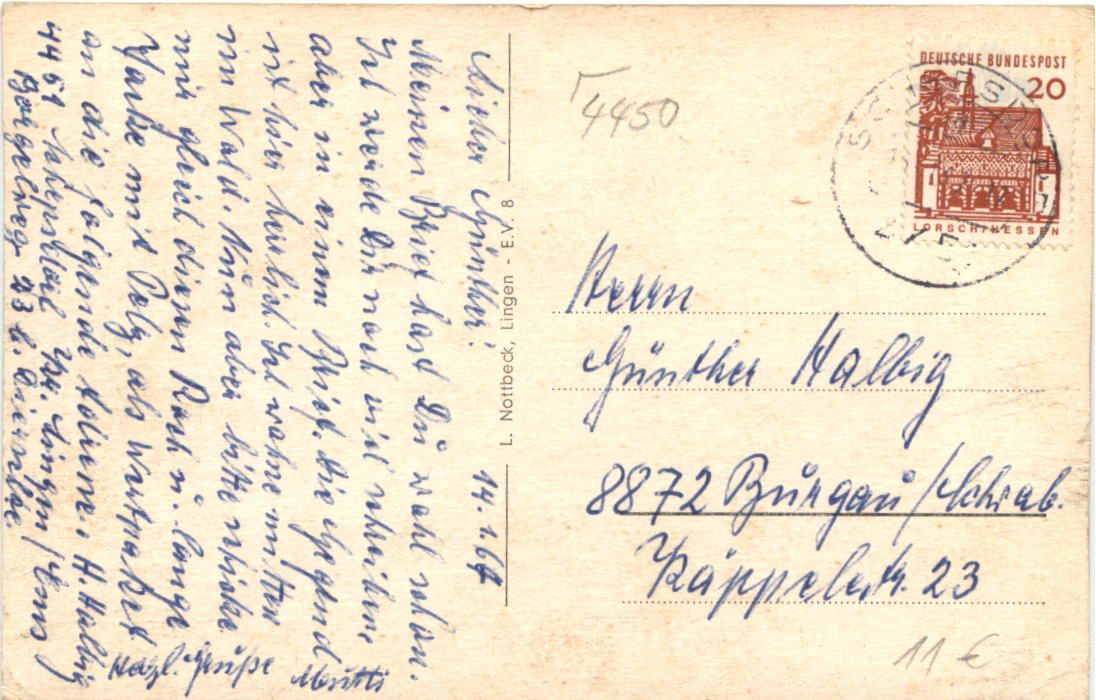 14.1.67
Lieber Günther!
Meinen Brief hast Du wohl schon.
Ich werde Dir noch viel schreiben
aber in einem Brief. Die Gegend
ist hier herrlich. Ich wohne mitten
im Wald. Nun aber bitte schicke
mir gleich diesen Rock u. lange
Jacke mit Pelz, als Wertpaket
an die folgende H. Halbig
4451 Lingen/Ems
23 b.
Herzl. Grüße Mutti
L. Nottbeck, Lingen - E.V. 8
4450
DEUTSCHE BUNDESPOST
20
LORSCH/HESSEN
Herrn
Günther Halbig
8872 Burgau/Schwab.
Käppelestr. 23
11 €